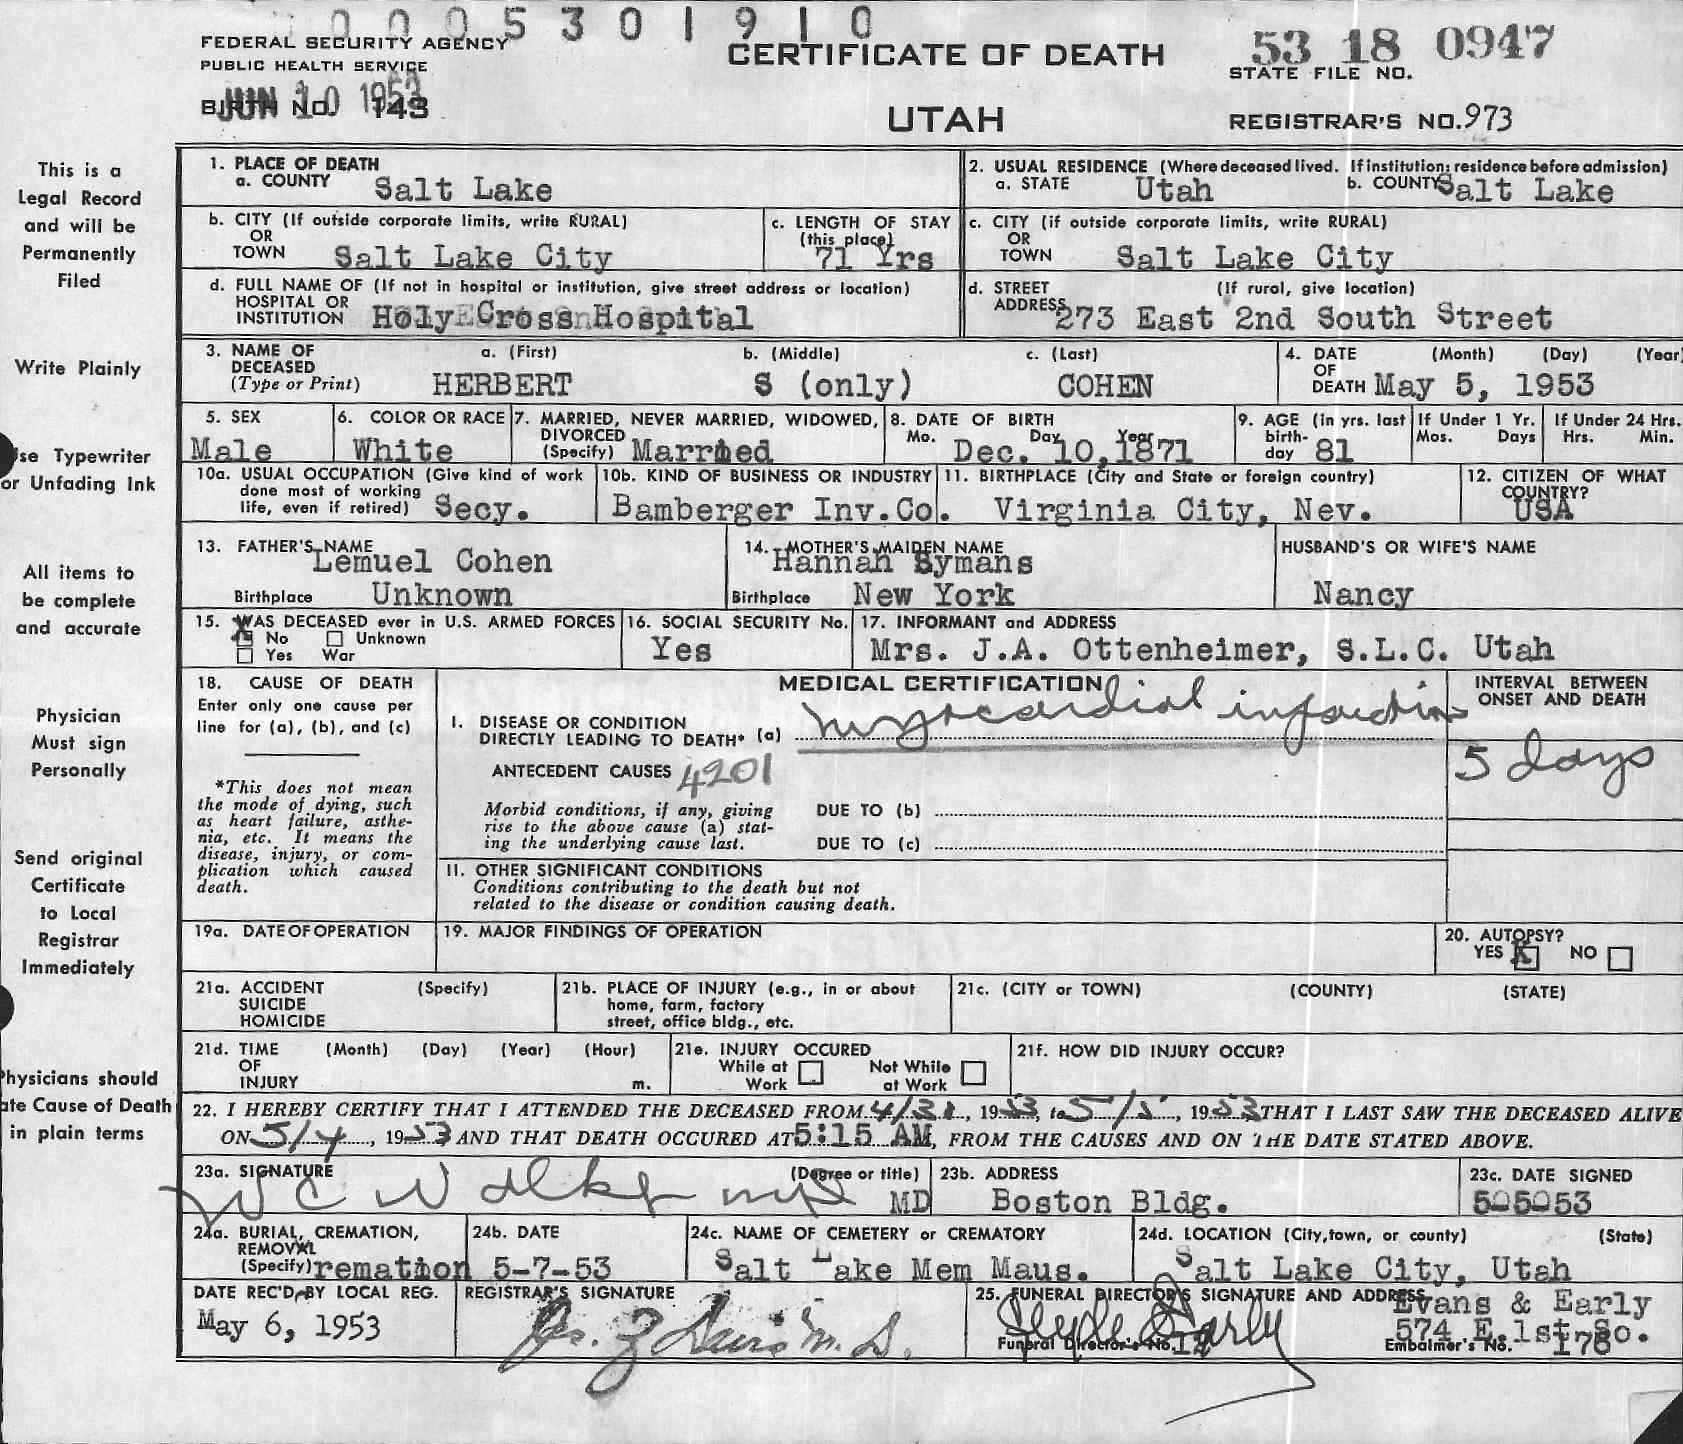 0005301910
FEDERAL SECURITY AGENCY
PUBLIC HEALTH SERVICE
BIRTH NO. 143
JUN 10 1953
CERTIFICATE OF DEATH
UTAH
53 18 0947
STATE FILE NO.
REGISTRAR'S NO. 973
This is a
Legal Record
and will be
Permanently
Filed
Write Plainly
Use Typewriter
or Unfading Ink
All items to
be complete
and accurate
Physician
Must sign
Personally
Send original
Certificate
to Local
Registrar
Immediately
Physicians should
ate Cause of Death
in plain terms
1. PLACE OF DEATH
a. COUNTY Salt Lake
2. USUAL RESIDENCE (Where deceased lived. If institution: residence before admission)
a. STATE Utah b. COUNTY Salt Lake
b. CITY (If outside corporate limits, write RURAL)
OR
TOWN Salt Lake City
c. LENGTH OF STAY
(this place)
71 Yrs
c. CITY (if outside corporate limits, write RURAL)
OR
TOWN Salt Lake City
d. FULL NAME OF (If not in hospital or institution, give street address or location)
HOSPITAL OR
INSTITUTION Holy Cross Hospital
d. STREET (If rural, give location)
ADDRESS 273 East 2nd South Street
3. NAME OF DECEASED (Type or Print)
a. (First) b. (Middle) c. (Last)
HERBERT S (only) COHEN
4. DATE OF DEATH (Month) (Day) (Year)
May 5, 1953
5. SEX
Male
6. COLOR OR RACE
White
7. MARRIED, NEVER MARRIED, WIDOWED,
DIVORCED
(Specify) Married
8. DATE OF BIRTH
Mo. Day Year
Dec. 10, 1871
9. AGE (in yrs. last
birth-
day 81
If Under 1 Yr.
Mos. Days
If Under 24 Hrs.
Hrs. Min.
10a. USUAL OCCUPATION (Give kind of work
done most of working
life, even if retired) Secy.
10b. KIND OF BUSINESS OR INDUSTRY
Bamberger Inv.Co.
11. BIRTHPLACE (City and State or foreign country)
Virginia City, Nev.
12. CITIZEN OF WHAT
COUNTRY?
USA
13. FATHER'S NAME
Lemuel Cohen
Birthplace Unknown
14. MOTHER'S MAIDEN NAME
Hannah Symans
Birthplace New York
HUSBAND'S OR WIFE'S NAME
Nancy
15. WAS DECEASED ever in U.S. ARMED FORCES
X No Unknown
Yes War
16. SOCIAL SECURITY No.
Yes
17. INFORMANT and ADDRESS
Mrs. J.A. Ottenheimer, S.L.C. Utah
18. CAUSE OF DEATH
Enter only one cause per
line for (a), (b), and (c)
*This does not mean
the mode of dying, such
as heart failure, asthe-
nia, etc. It means the
disease, injury, or com-
plication which caused
death.
MEDICAL CERTIFICATION
I. DISEASE OR CONDITION
DIRECTLY LEADING TO DEATH* (a) myocardial infarction
ANTECEDENT CAUSES 4201
Morbid conditions, if any, giving
rise to the above cause (a) stat-
ing the underlying cause last.
DUE TO (b)
DUE TO (c)
INTERVAL BETWEEN
ONSET AND DEATH
5 days
11. OTHER SIGNIFICANT CONDITIONS
Conditions contributing to the death but not
related to the disease or condition causing death.
19a. DATE OF OPERATION
19. MAJOR FINDINGS OF OPERATION
20. AUTOPSY?
YES X NO
21a. ACCIDENT (Specify)
SUICIDE
HOMICIDE
21b. PLACE OF INJURY (e.g., in or about
home, farm, factory
street, office bldg., etc.
21c. (CITY or TOWN) (COUNTY) (STATE)
21d. TIME (Month) (Day) (Year) (Hour)
OF
INJURY m.
21e. INJURY OCCURED
While at Work
Not While at Work
21f. HOW DID INJURY OCCUR?
22. I HEREBY CERTIFY THAT I ATTENDED THE DECEASED FROM 4/31, 1953, to 5/5, 1953 THAT I LAST SAW THE DECEASED ALIVE
ON 5/4, 1953 AND THAT DEATH OCCURED AT 5:15 AM, FROM THE CAUSES AND ON THE DATE STATED ABOVE.
23a. SIGNATURE (Degree or title)
W C Walker MD MD
23b. ADDRESS
Boston Bldg.
23c. DATE SIGNED
5-5-53
24a. BURIAL, CREMATION,
REMOVAL
(Specify) remation
24b. DATE
5-7-53
24c. NAME OF CEMETERY or CREMATORY
Salt Lake Mem Maus.
24d. LOCATION (City, town, or county) (State)
Salt Lake City, Utah
DATE REC'D BY LOCAL REG.
May 6, 1953
REGISTRAR'S SIGNATURE
Davis M. D.
25. FUNERAL DIRECTOR'S SIGNATURE AND ADDRESS
Clyde Early
Evans & Early
574 E. 1st So.
Funeral Director's No.
Embalmer's No. 178